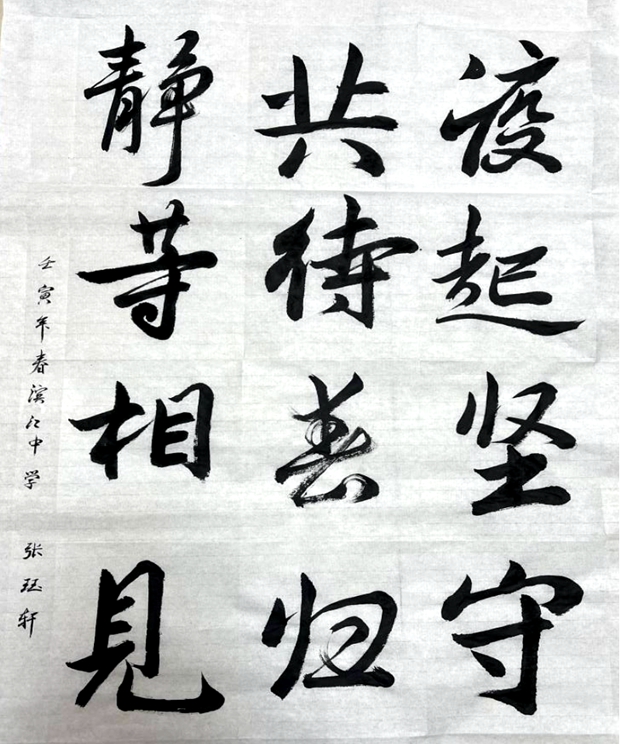 疫起坚守
共待春归
静等相见
壬寅年春滨江中学 张珏轩